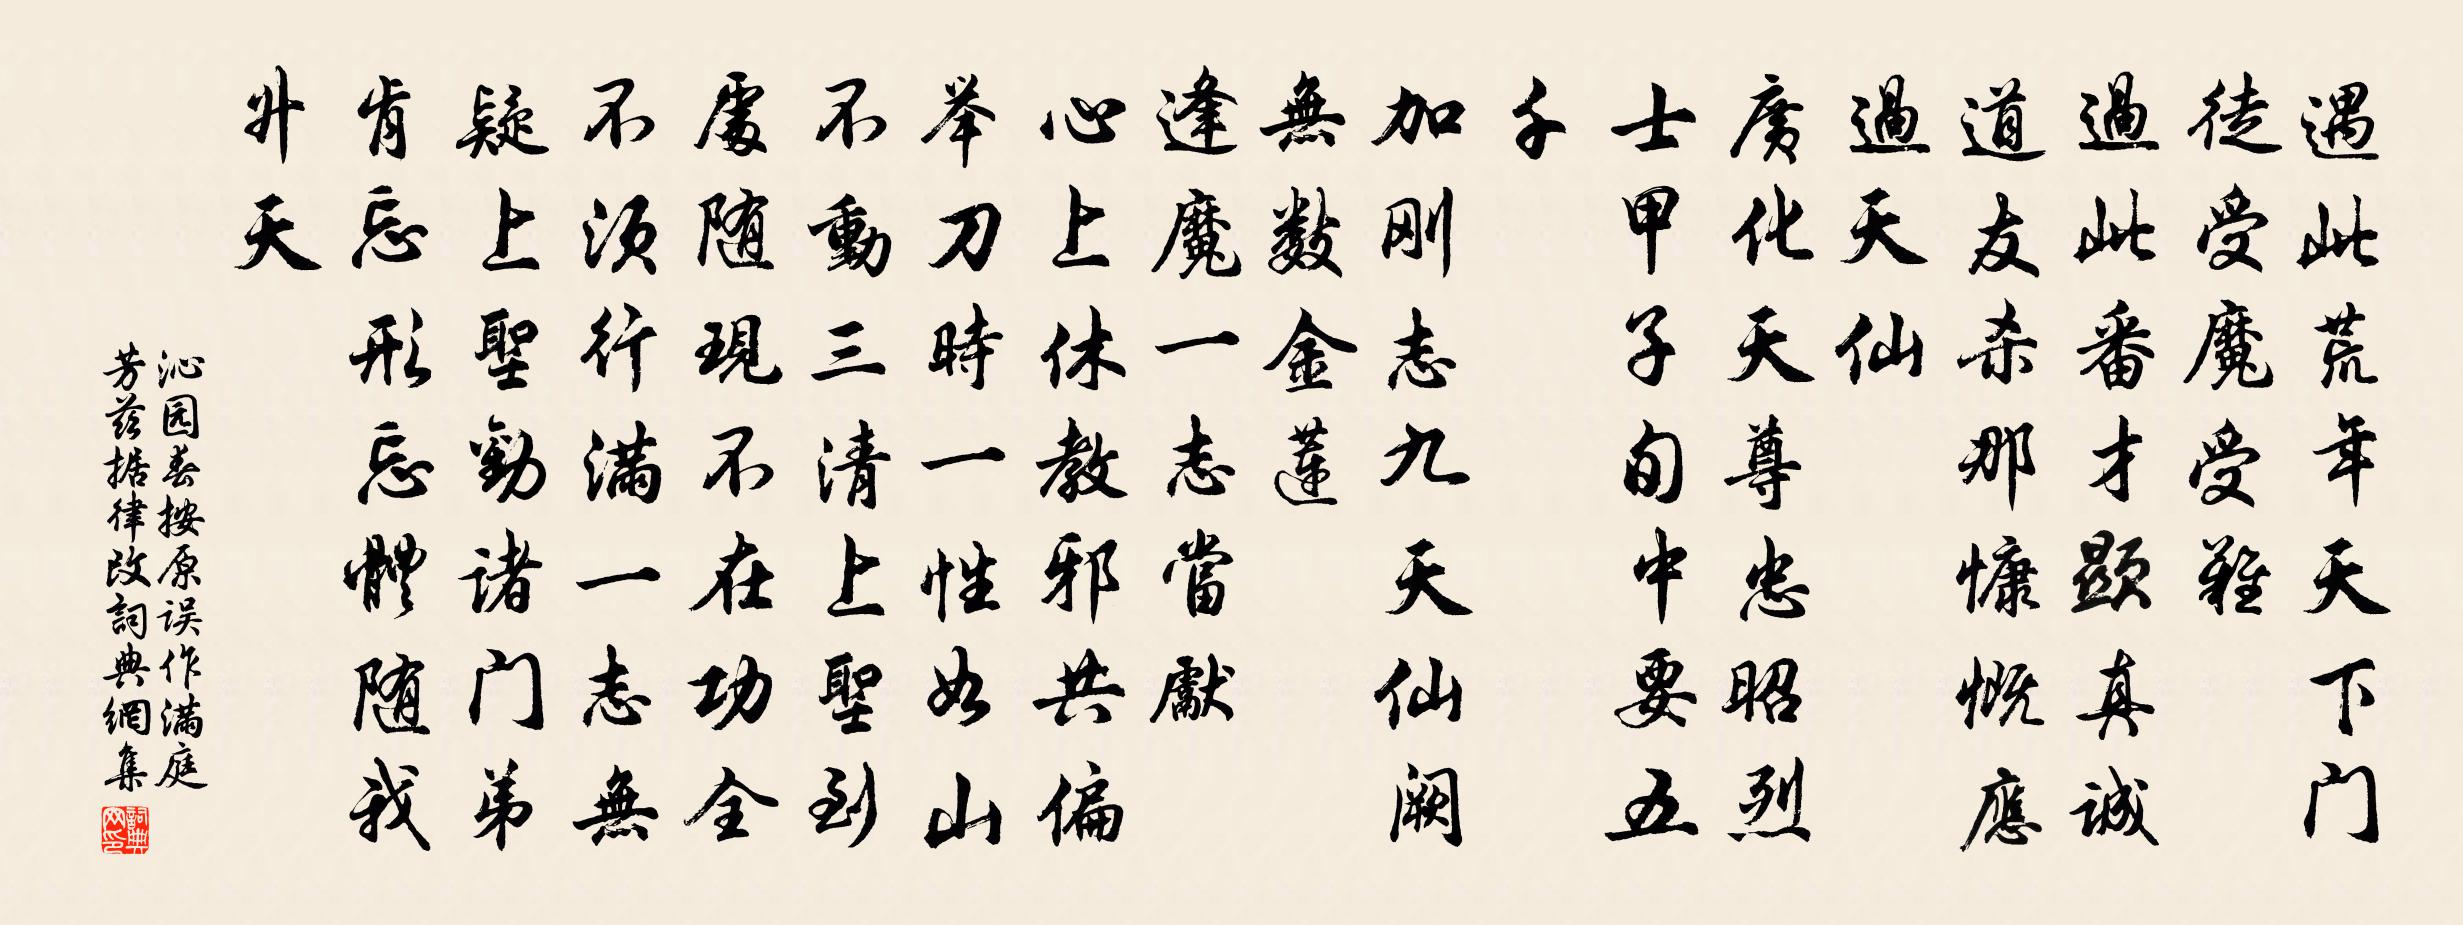 遇此荒年天下门
徒受魔受難
過此番才顯真誠
道友杀那慷慨應
過天仙
廣化天尊忠昭烈
士甲子旬中要五
千
加刚志九天仙阙
無数金蓮
逢魔一志當獻
心上休教邪共偏
举刀時一性如山
不動三清上聖到
處随現不在功全
不须行满一志無
疑上聖勸诸门弟
肯忘形忘體随我
升天
沁园春按原误作满庭
芳兹据律改詞典網集
詞典